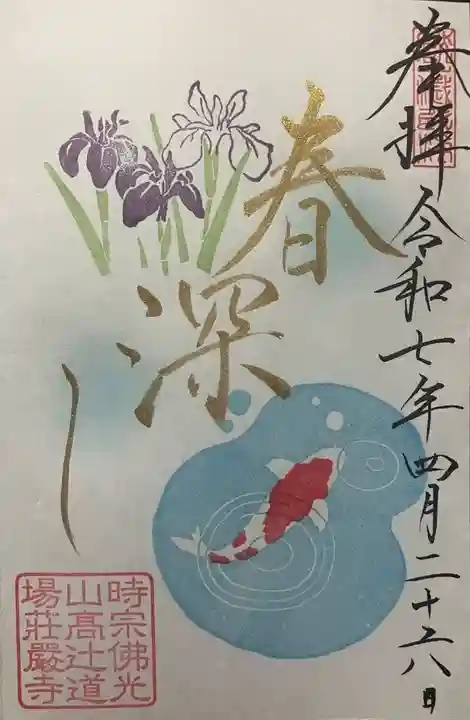 奉拝 令和七年四月二十六日
春
深
し
時宗佛光
山高辻道
場荘嚴寺